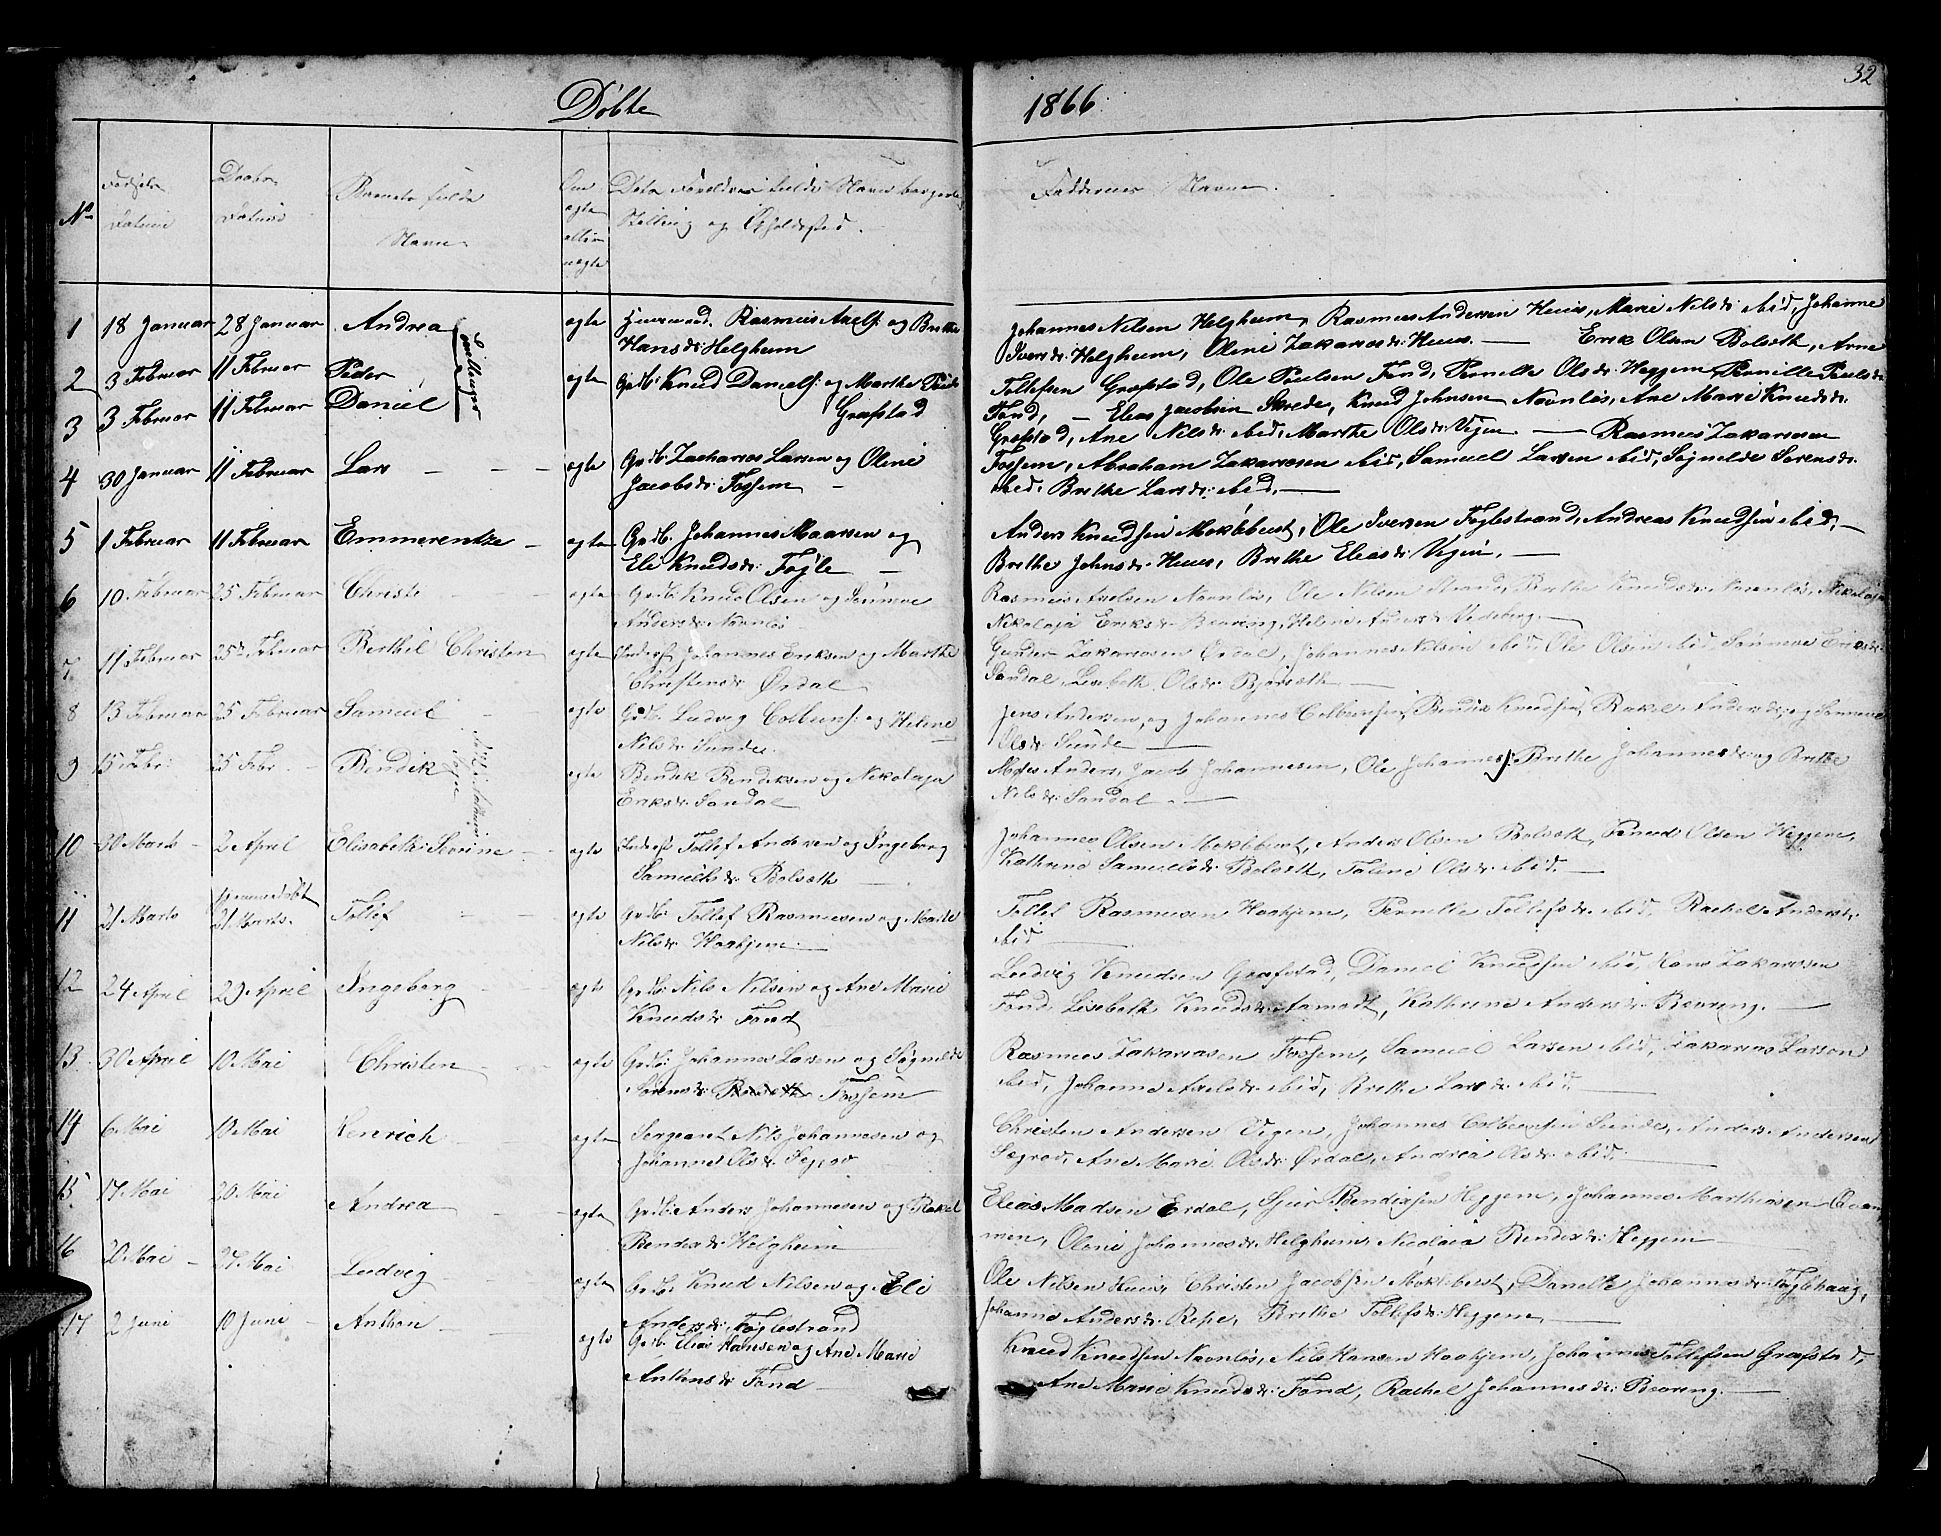 32
Døbte
1866
No
Fødsels
Datum
Daabs
Datum
Barnets fulde
Navn
Om
ægte
eller
uægte
Dets Foreldres fulde Navn borgerl.
Stilling og Opholdssted.
Faddernes Navne.
1 18 Januar 28 Januar Andrea ægte Huusmand. Rasmus Axels. og Brithe
Hansdr. Helgheim
Johannes Nilsen Helgheim, Rasmus Andersen Huus, Marie Nilsdr. ibid, Johanne
Iversdr. Helgheim, Oline Zakariasdr. Huus. — Erik Olsen Bolsæth, Arne
2 3 Februar 11 Februar Peder ægte Grdb. Knud Daniels. og Marthe
Tvillinger
3 3 Februar 11 Februar Daniel
Grafstad
Tollefsen Grafstad, Ole Poulsen Fond, Pernille Olsdr. Heggem, Pernille Poulsdr.
Fond, — Elias Jacobsen Skrede, Knud Johnsen Navnløs, Ane Marie Knudsdr.
Grafstad, Ane Nilsdr. ibid, Marthe Olsdr. Vigen. — Rasmus Zakariasen
4 30 Januar 11 Februar Lars — — ægte Grdb. Zacharias Larsen og Oline
Jacobsdr. Fossem —
Fossem, Abraham Zakariasen ibid, Samuel Larsen ibid, Søgnilde Sørensdr.
ibid, Brithe Larsdr. ibid. —
5 1 Februar 11 Februar Emmerentze — ægte Grdb. Johannes Maarsen og
Eli Knudsdr. Føgle —
Anders Knudsen Møklebust, Ole Iversen Føglestrand, Andreas Knudsen ibid, —
Brithe Johnsdr. Huus, Brithe Eliasdr. Vigen. —
6 10 Februar 25 Februar Christi — ægte Grdb. Knud Olsen og Sønneve
Andersdr. Navnløs
Rasmus Axelsen Navnløs, Ole Nilsen Strand, Brithe Knudsdr. Navnløs, Nikolaja
Nikolaja Eriksdr. Bearing, Helene Andersdr. Vedeberg. —
7 11 Februar 25de Februar Berthil Christen ægte Inderst Johannes Eriksen og Marthe
Christensdr. Ørdal
Gunder Zakariasen Ørdal, Johannes Nilsen ibid, Ole Olsen ibid, Sønneve Eriksdr.
Sandal, Lisebeth Olsdr. Bjørsæth —
8 13 Februar 25 Februar Samuel — ægte Grdb. Ludvig Colbens. og Helene
Nilsdr. Sunde.
Jens Andersen, og Johannes Colbensen, Bendix Knudsen, Rakel Andersdr. og Sønneve
Olsdr. Sunde —
9 15 Febr. 25 Febr. — Bendik ægte Bendik Bendiksen og Nikolaja
Eriksdr. Sandal
Mons Anders. Jacob Johannesen, Ole Johannes. Brithe Johannesdr. og Brithe
Nilsdr. Sandal. —
10 30 Marts — 2 April Elisabeth Severine — ægte Inderst Tollef Andersen og Ingeborg
Samuelsdr. Bolsæth —
Johannes Olsen Møklebust, Anders Olsen Bolsæth, Knud Olsen Heggem,
Kathrine Samuelsdr. Bolsæth, Taline Olsdr. ibid. —
11 21 Marts hjemmedøbt
21 Marts. Tollef — ægte Grdb. Tollef Rasmusen og Marte
Nilsdr. Haahjem. —
Tollef Rasmusen Haahjem, Pernille Tollefsdr. ibid, Rachel Andersdr.
ibid —
12 24 April 29 April Ingeborg — ægte Grdb. Nils Nilsen og Ane Marie
Knudsdr. Fond
Ludvig Knudsen Grafstad, Daniel Knudsen ibid, Hans Zakariasen
Fond, Lisebeth Knudsdr. Aamodt, Kathrine Andersdr. Bearing. —
13 30 April 10 Mai Christen — ægte Grdb. Johannes Larsen og Søgnilde
Sørensdr. Fossem
Rasmus Zakariasen Fossem, Samuel Larsen ibid, Zakarias Larsen
ibid, Johanne Axelsdr. ibid, Brithe Larsdr. ibid.
14 6 Mai 10 Mai Henrich — ægte Sergeant Nils Johannesen og
Johanne Olsdr. Segrov
Christen Andersen Vigen, Johannes Colbensen Sunde, Anders Andersen
Søgrov, Ane Marie Olsdr. Ørdal, Andrea Olsdr. ibid. —
15 17 Mai 20 Mai Andrea — ægte Grdb. Anders Johannesen og Rakel
Bendixdr. Helgheim
Elias Madsen Erdal, Sjur Bendixsen Heggem, Johannes Marthiasen Qvam
men, Oline Johannesdr. Helgheim, Nicolaia Bendixdr. Heggem —
16 20 Mai — 27 Mai Ludvig — ægte Grdb. Knud Nilsen og Eli
Andersdr. Føglestrand
Ole Nilsen Huus, Christen Jacobsen Møklebust, Danelle Johannesdr. Føglehaug,
Johanne Andersdr. Repe, Brithe Tollefsdr. Heggem —
17 2 Juni 10 Juni — Anthon — ægte Grdb. Elias Hansen og Ane Marie
Anthonsdr. Fond —
Knud Knudsen Navnløs, Nils Hansen Haahjem, Johannes Tollefsen Grafstad,
Ane Marie Knudsdr. Fond, Rachel Johannesdr. Bearing. —